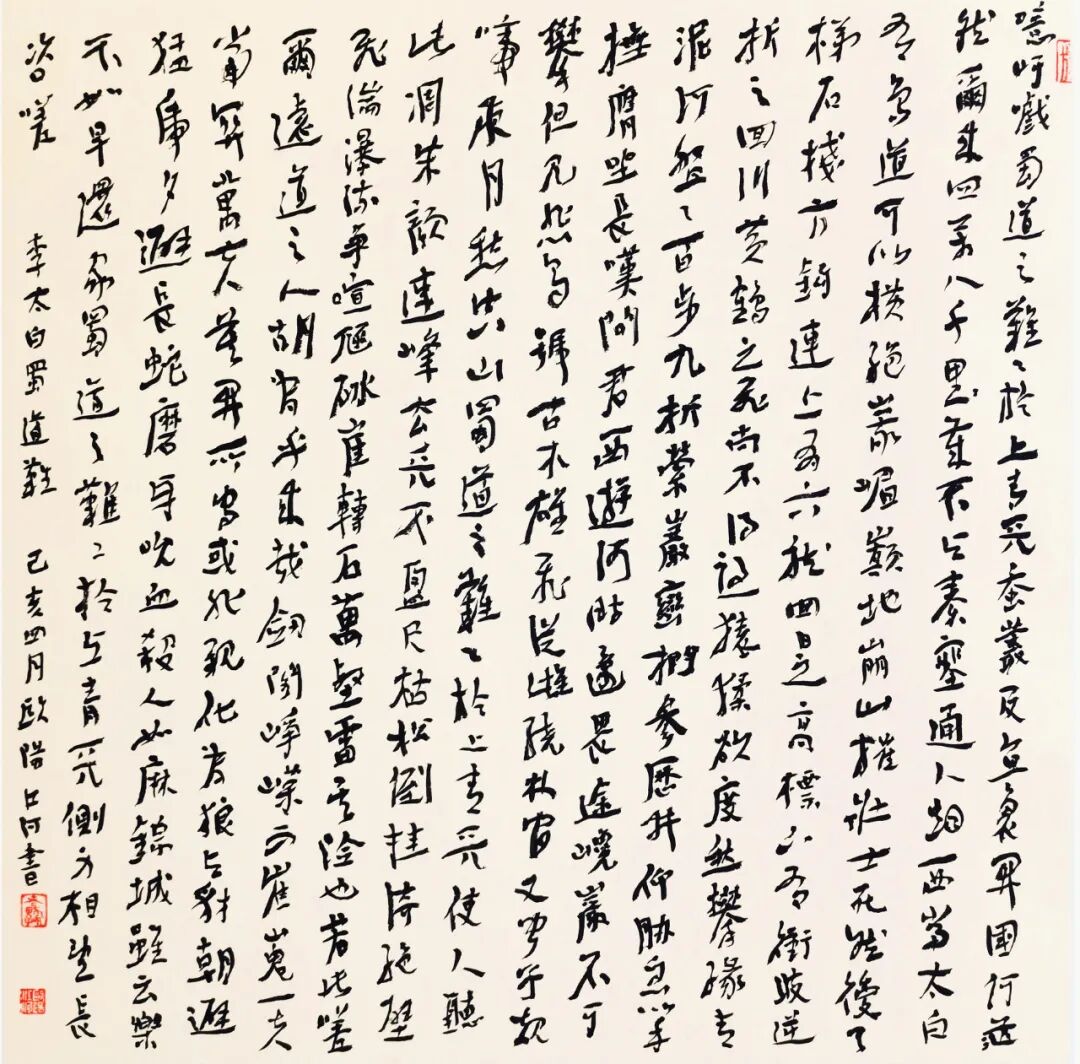 噫吁嚱蜀道之難〻於上青天蚕叢及魚鳧開國何茫
然爾来四萬八千里歲不与秦塞通人烟西當太白
有鳥道可以橫絕峨嵋巔地崩山摧壯士死然後天
梯石棧方鉤連上有六龍回日之高標下有衝波逆
折之回川黃鶴之飛尚不得過猿猱欲度愁攀緣青
泥何盤〻百步九折縈巖巒捫參歷井仰脅息以手
撫膺坐長嘆問君西遊何時還畏途巉巖不可
攀但見悲鳥號古木雄飛從雌繞林間又聞子規
啼夜月愁空山蜀道之難〻於上青天使人聽
此凋朱顏連峰去天不盈尺枯松倒挂倚絕壁
飛湍瀑流爭喧豗砯崖轉石萬壑雷其險也若此嗟
爾遠道之人胡為乎来哉劍閣崢嶸而崔嵬一夫
當關萬夫莫開所守或匪親化為狼与豺朝避
猛虎夕避長蛇磨牙吮血殺人如麻錦城雖云樂
不如早還家蜀道之難〻於上青天側身相望長
咨嗟 李太白蜀道難 己亥四月歐陽江河書